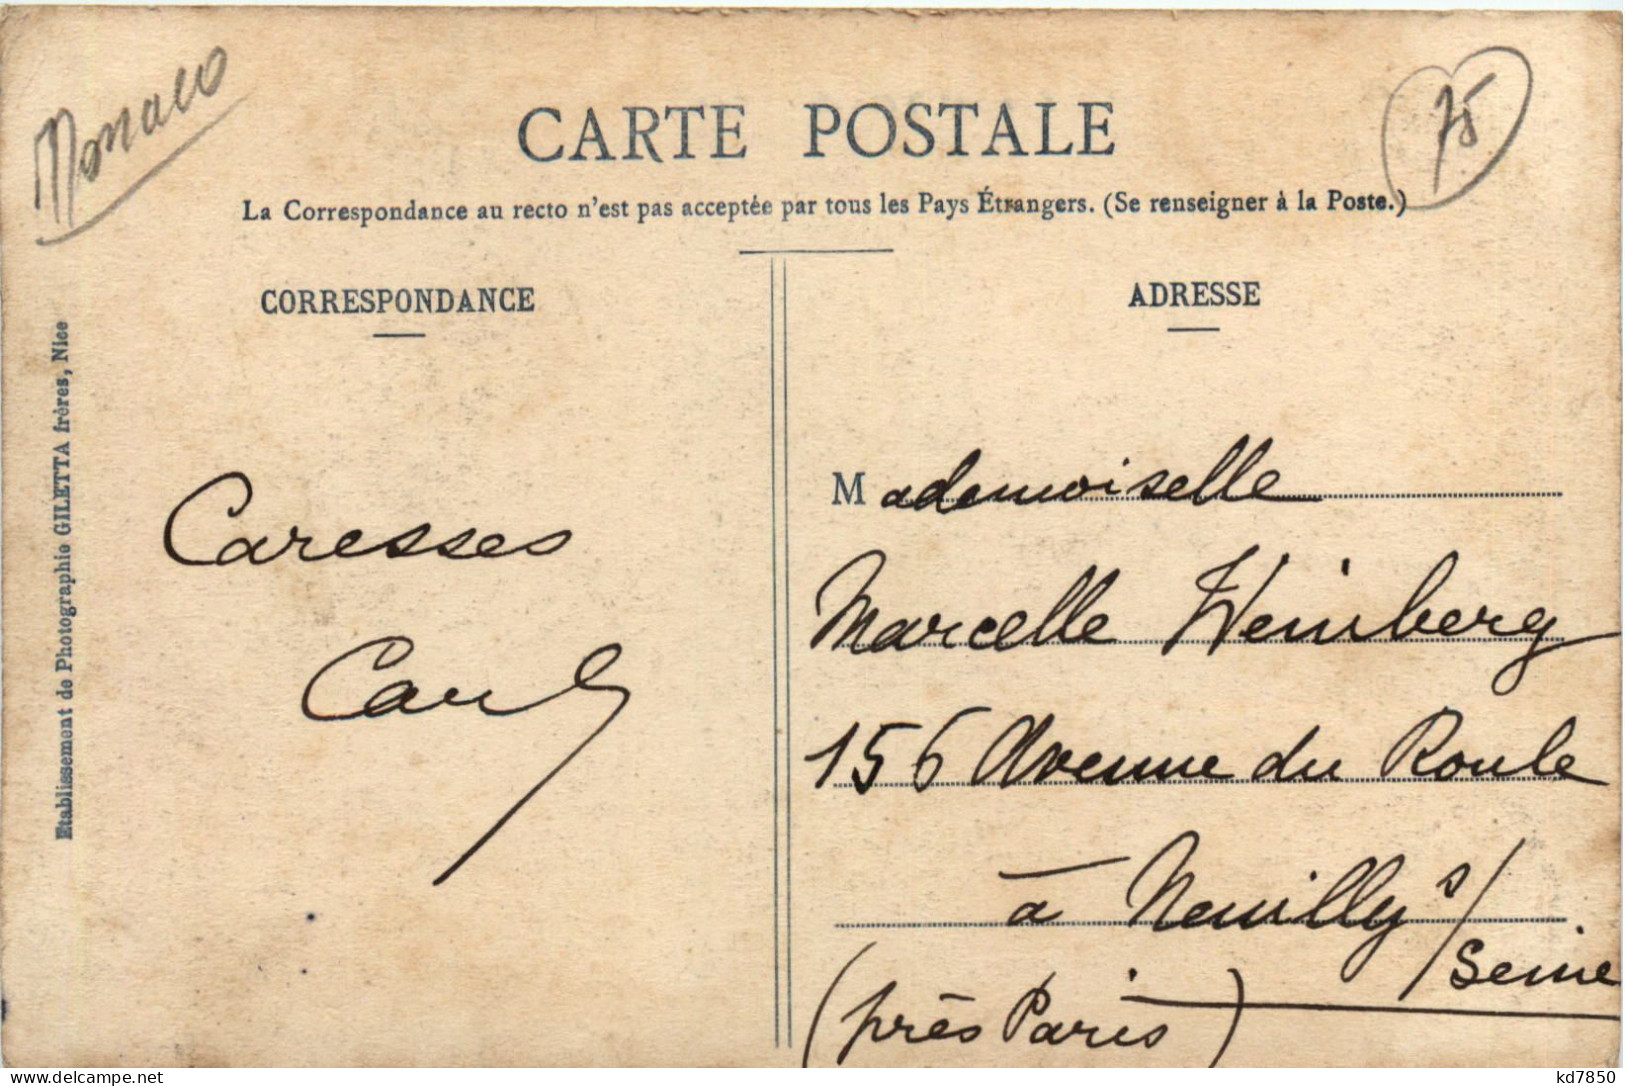 Monaco
75
CARTE POSTALE
La Correspondance au recto n'est pas acceptée par tous les Pays Étrangers. (Se renseigner à la Poste.)
CORRESPONDANCE
Caresses
Etablissement de Photographie GILETTA frères, Nice
ADRESSE
Mademoiselle
Marcelle Weinberg
156 Avenue du Roule
à Neuilly s/ Seine
(près Paris)
kd7850